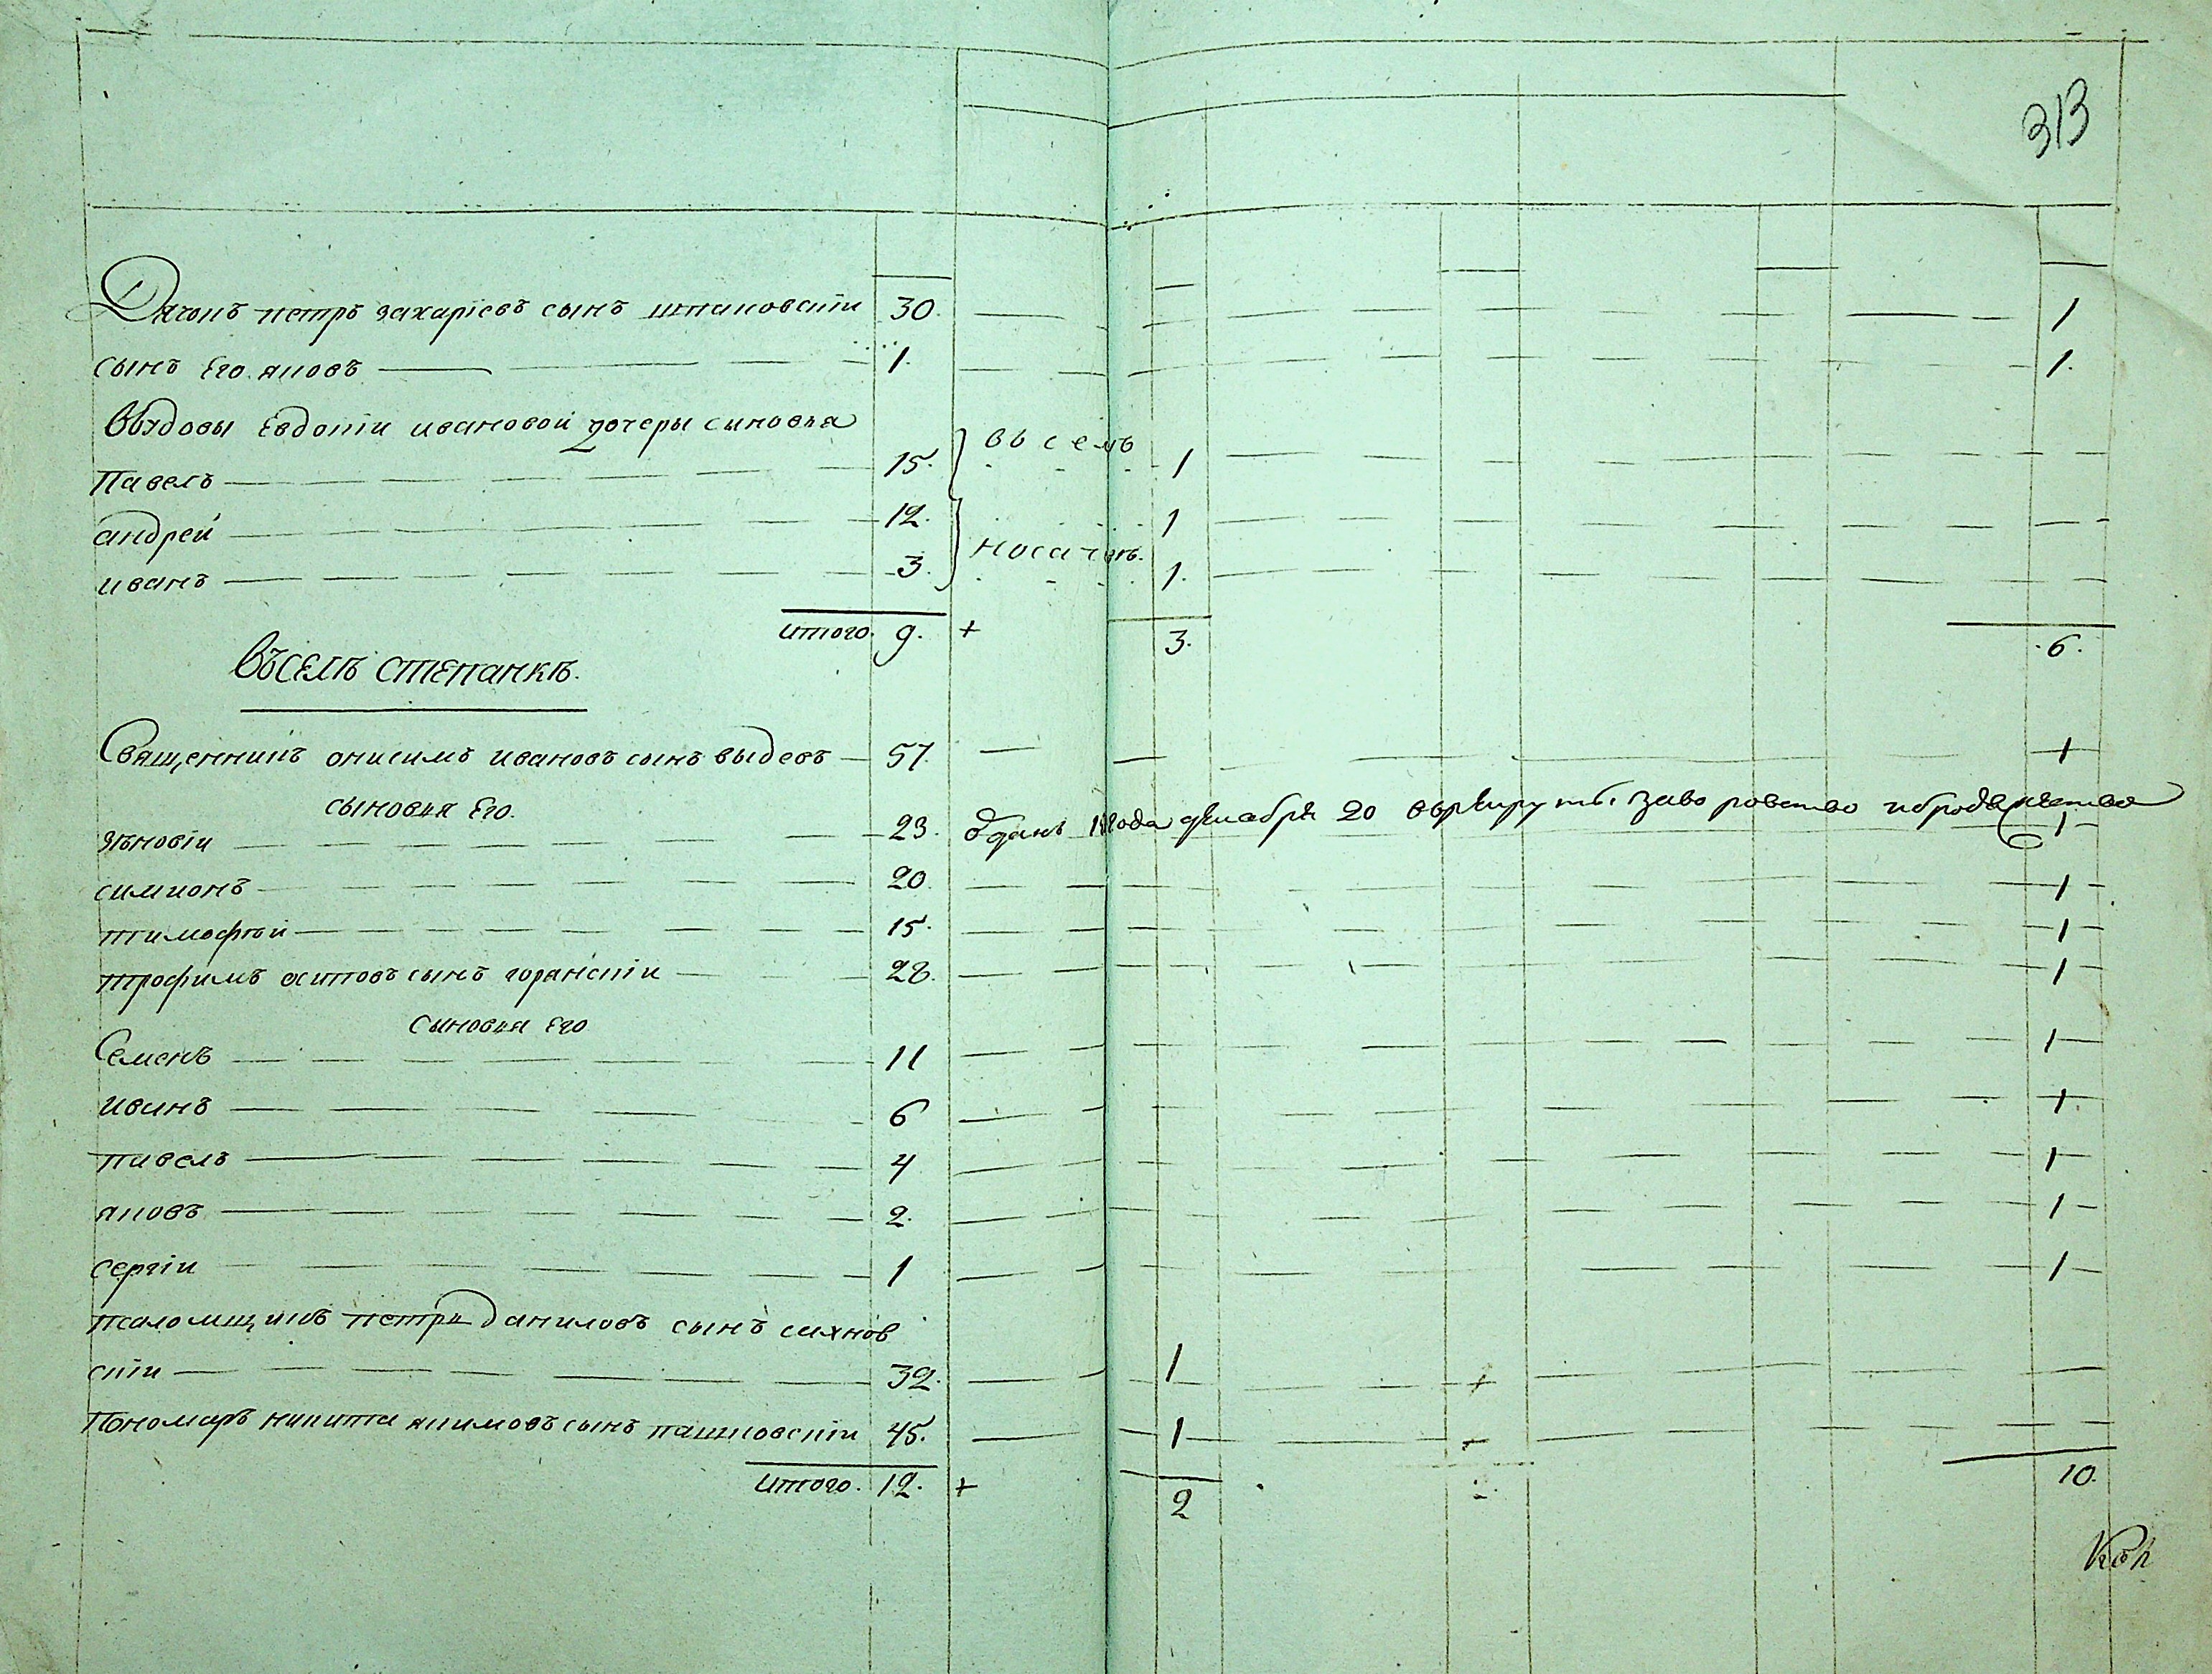 313
Дячокъ петръ захаріевъ сынъ шпаковскіи 30. 1
сынъ его яковъ 1. 1.
Вдовы Евдокіи ивановой дочеры сыновья
Павелъ 15. въ селѣ 1
андрей 12. 1
иванъ 3. носачовѣ. 1.
итого. 9. + 3. 6.
Въселѣ степанкѣ.
Священникъ онисимъ ивановъ сынъ выдевъ 57. 1
сыновья Его.
зѣновіи 23. отданъ года декабря 20 врекруты. заворовство ибродяжство 1
симионъ 20. 1
тимофѣй 15. 1
трофимъ осиповъ сынъ горянскіи 28. 1
сыновья его
Семенъ 11 1
иванъ 6 1.
павелъ 4 1
яковъ 2. 1
сергіи 1 1
псаломщикъ петръ даниловъ сынъ сахнов
скіи 32. 1
Пономаръ никита якимовъ сынъ пашковскіи 45. 1
итого. 12. + 2 10.